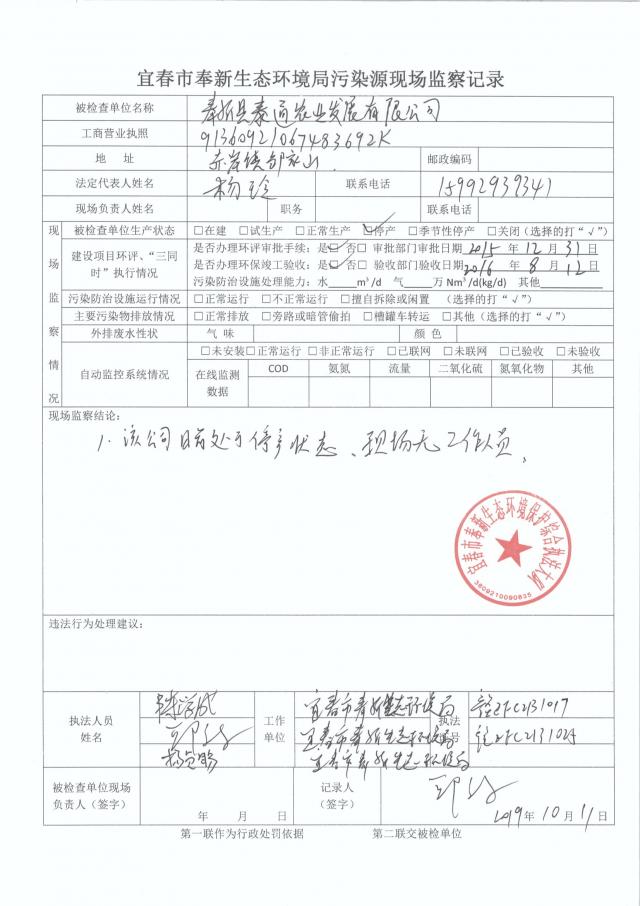 宜春市奉新生态环境局污染源现场监察记录
被检查单位名称 奉新县泰通农业发展有限公司
工商营业执照 91360921067483692K
地 址 赤岸镇郭家山 邮政编码
法定代表人姓名 杨玲 联系电话 15992939341
现场负责人姓名 职务 联系电话
现场监察情况
被检查单位生产状态 □在建 □试生产 □正常生产 ☑停产 □季节性停产 □关闭(选择的打“√”)
建设项目环评、“三同时”执行情况
是否办理环评审批手续:是☑ 否□ 审批部门审批日期 2015 年 12 月 31 日
是否办理环保竣工验收:是☑ 否□ 验收部门验收日期 2016 年 8 月 12 日
污染防治设施处理能力:水 m³/d 气 万 Nm³/d(kg/d) 其他
污染防治设施运行情况 □正常运行 □不正常运行 □擅自拆除或闲置 (选择的打“√”)
主要污染物排放情况 □正常排放 □旁路或暗管偷拍 □槽罐车转运 □其他(选择的打“√”)
外排废水性状 气 味 颜 色
自动监控系统情况 □未安装□正常运行 □非正常运行 □已联网 □未联网 □已验收 □未验收
在线监测数据 COD 氨氮 流量 二氧化硫 氮氧化物 其他
现场监察结论:
1. 该公司目前处于停产状态、现场无工作人员。
宜春市奉新生态环境保护综合执法大队
3609210090835
违法行为处理建议:
执法人员姓名 工作单位 执法 号
宜春市奉新生态环境局
宜春市奉新生态环境局
宜春市奉新生态环境局
被检查单位现场负责人(签字) 年 月 日
记录人(签字) 2019 年 10 月 11 日
第一联作为行政处罚依据 第二联交被检单位